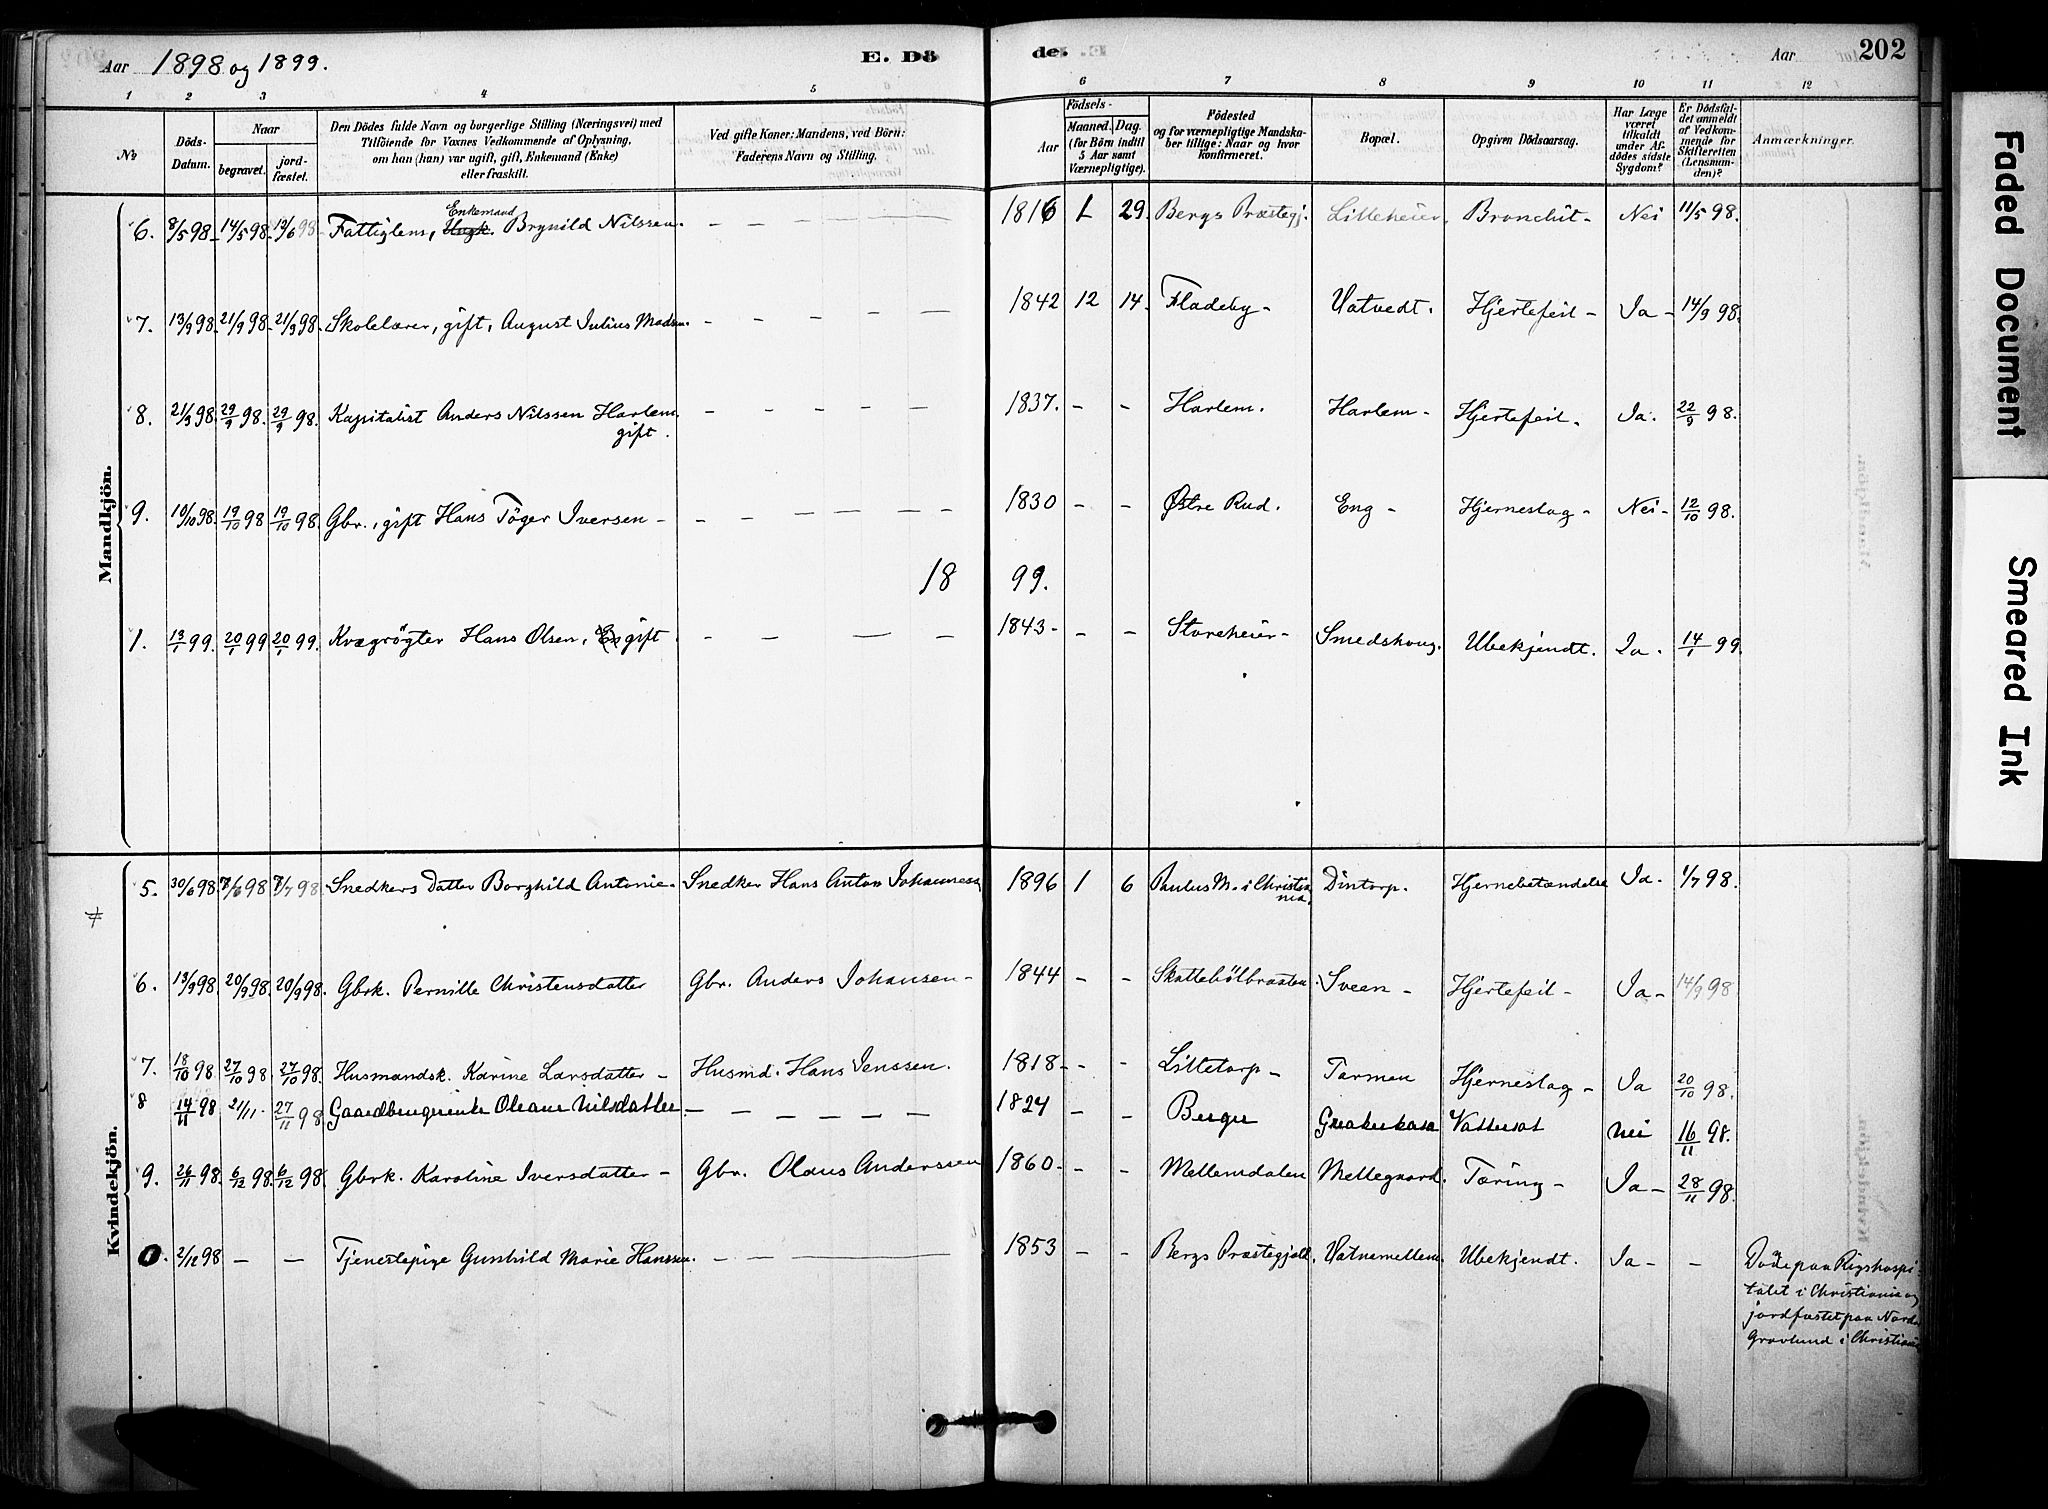 Aar 1898 og 1899. E. Dö de. Aar 202
1 2 3 4 5 6 7 8 9 10 11 12
No
Döds-Datum.
Naar
begravet. jord-fæstet.
Den Dödes fulde Navn og borgerlige Stilling (Næringsvei) med
Tilföiende for Voxnes Vedkommende af Oplysning,
om han (hun) var ugift, gift, Enkemand (Enke)
eller fraskilt.
Ved gifte Koner: Mandens, ved Börn:
Faderens Navn og Stilling.
Födsels-
Aar Maaned. Dag.
(for Börn indtil
5 Aar samt
Værnepligtige).
Födested
og for værnepligtige Mandska-
ber tillige: Naar og hvor
konfirmeret.
Bopæl.
Opgiven Dödsaarsag.
Har Læge
været
tilkaldt
under Af-
dödes sidste
Sygdom?
Er Dödsfal-
det anmeldt
af Vedkom-
mende for
Skifteretten
(Lensman-
den)?
Anmærkninger.
Mandkjön.
Enkemand
6. 8/5 98. 14/5 98. 12/6 98. Fattiglem, Brynild Nilssen. — — 1816 1 29. Bergs Præstegj. Lilleheier. Bronchit. Nei 11/5 98.
7. 13/9 98. 21/9 98. 21/9 98. Skolelærer, gift, August Julius Madsen. — — — — — — 1842 12 14. Fladeby. Vatvedt. Hjertefeil. Ja. 14/9 98.
8. 21/9 98. 29/9 98. 29/9 98. Kapitalist Anders Nilssen Harlem, — — — — — — 1837. — — Harlem. Harlem. Hjertefeil. Ja. 22/9 98.
gift.
9. 10/10 98. 19/10 98 19/10 98. Gbr., gift Hans Töger Iversen — — — — — — — 1830 — — Østre Rud. Eng Hjerneslag. Nei. 12/10 98.
18 99.
1. 13/1 99. 20/1 99 20/1 99. Kvægrögter Hans Olsen, gift — — — — 1843 — — Storeheier Smedshaug. Ubekjendt. Ja. 14/1 99.
Kvindekjön.
5. 30/6 98. 7/6 98 7/7 98. Snedkers Datter Borghild Antonie Snedker Hans Anton Johanness 1896 1 6 Paulus M. i Christia Dintorp. Hjernebetændelse Ja. 1/7 98.
nia.
6. 13/9 98. 20/9 98. 20/9 98. Gbrk. Pernille Christensdatter Gbr. Anders Johansen 1844 — — Skattebölbraaten Sveen Hjertefeil Ja 14/9 98
7. 18/10 98 27/10 98 27/10 98. Husmandsk. Karine Larsdatter Husmd. Hans Jenssen. 1818 — — Litletorp Tarmen Hjerneslag Ja 20/10 98.
8 14/11 98 21/11. 27/11 98 Gaardbrugerenke Oleane Nilsdatter — — — — — 1824 — — Berger Graakerkasa Vattersot Nei 16/11 98.
9. 26/11 98. 6/12 98. 6/12 98. Gbrk. Karoline Iversdatter Gbr. Olaus Anderssen 1860. — — Mellemdalen Mellegaard. Tæring Ja 28/11 98.
2/12 98 — — Tjenestepige Gunhild Marie Hanssen. — — — 1853 — — Bergs Præstegjeld. Vatnemellem. Ubekjendt. Ja — Döde paa Rigshospi-
talet i Christiania og
jordfæstet paa Nordre
Gravlund i Christiania
Faded Document
Smeared Ink